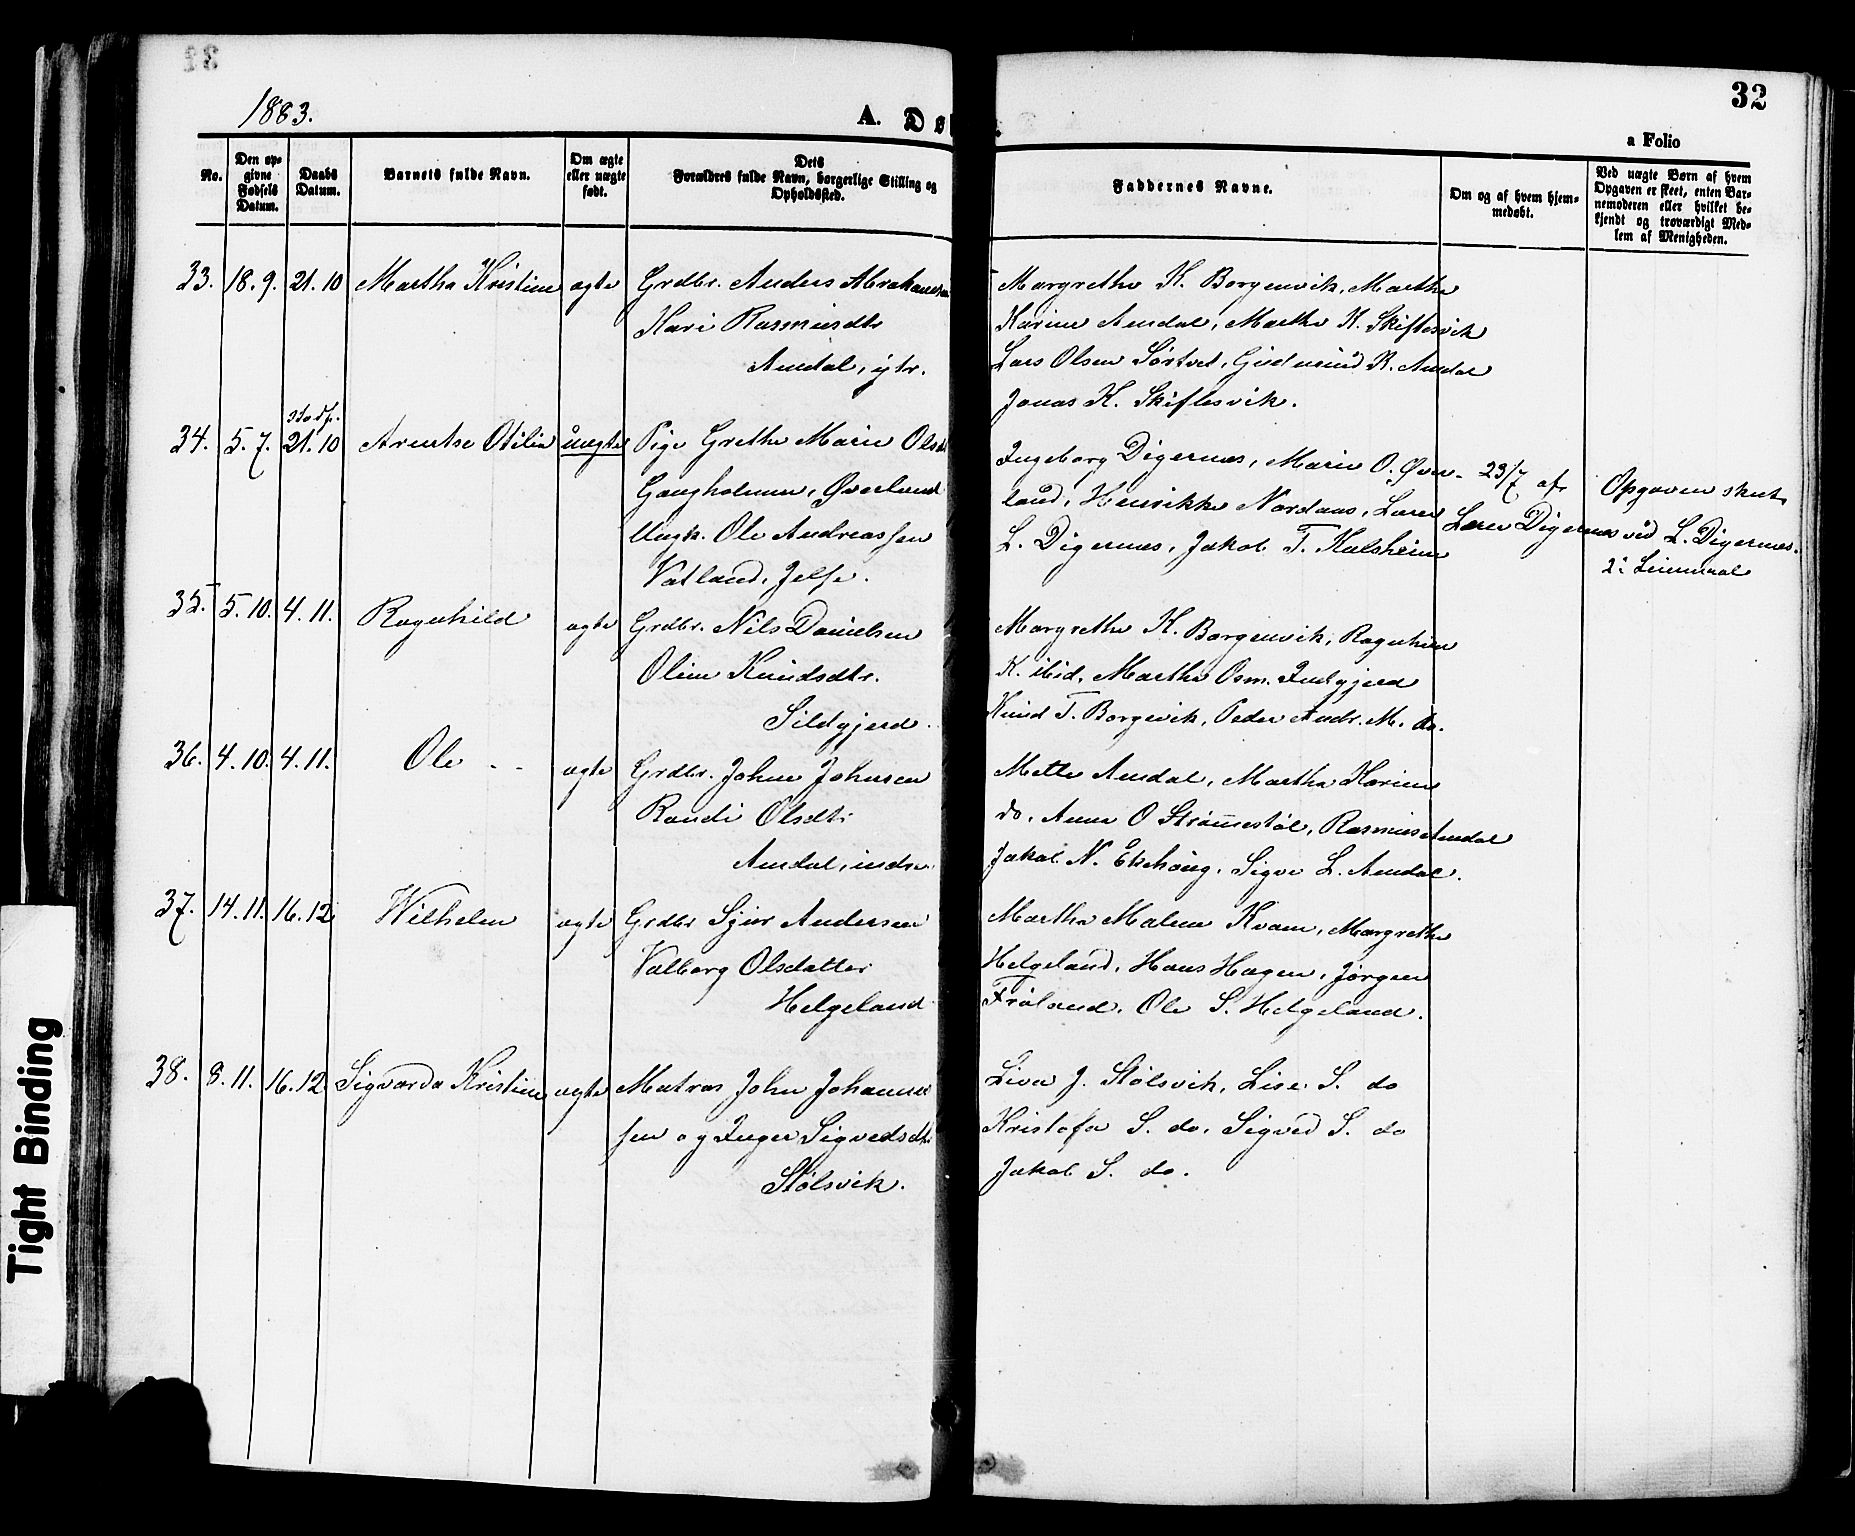 32
1883.
A. Dø
a Folio
No.
Den op-
givne
Fødsels
Datum.
Daabs
Datum.
Barnets fulde Navn.
Om ægte
eller uægte
født.
Dets
Forældres fulde Navn, borgerlige Stilling og
Opholdssted.
Faddernes Navne.
Om og af hvem hjem-
medøbt.
Ved uægte Børn af hvem
Opgaven er skeet, enten Bar-
nemoderen eller hvilket be-
kjendt og troværdigt Med-
lem af Menigheden.
33. 18.9. 21.10 Martha Kristine ægte Grdbr. Anders Abrahamsen
Kari Rasmusdtr
Amdal, ytr.
Margrethe K. Borgenvik, Martha
Karine Amdal, Martha K. Skiftesvik
Lars Olsen Sørtvet, Gudmund R. Amdal
Jonas K. Skiftesvik.
34. 5.7. 21.10 Arentse Otilia uægte Pige Grethe Marie Olsd
Gangholmen, Øverland
Ungk. Ole Andreassen
Vatland, Jelse.
Ingeborg Digernes, Marie O. Øver-
land, Henrikke Nordaas, Lærer
L. Digernes, Jakob T. Kalsheim
23/7 af
Lærer Digernes
Opgaven skeet
ved L. Digernes.
2: Leiermaal
35. 5.10. 4.11. Ragnhild ægte Grdbr. Nils Danielsen
Oline Knudsdtr.
Sildgjerd.
Margrethe K. Borgenvik, Ragnhild
K. ibid, Martha Osm. Indgjerd
Knud T. Borgevik, Peder Andr. M. do.
36. 4.10. 4.11. Ole ægte Grdbr. John Johnsen
Randi Olsdtr
Amdal, indre
Mette Amdal, Martha Karine
do, Anna O Strømmestøl, Rasmus Amdal
Jakob N. Ekehaug, Sigve L. Amdal.
37. 14.11. 16.12 Wilhelm ægte Grdbr Sjur Andersen
Valborg Olsdatter
Helgeland
Martha Malene Kvam, Margrethe
Helgeland, Hans Hagen, Jørgen
Frøland, Ole S. Helgeland.
38. 8.11. 16.12. Sigvarda Kristine ægte Matros John Johannes
sen og Inger Sigvedsdtr
Stølsvik.
Liva J. Stølsvik, Lise S. do
Kristofa S. do, Sigved S. do
Jakob S. do.
Tight Binding